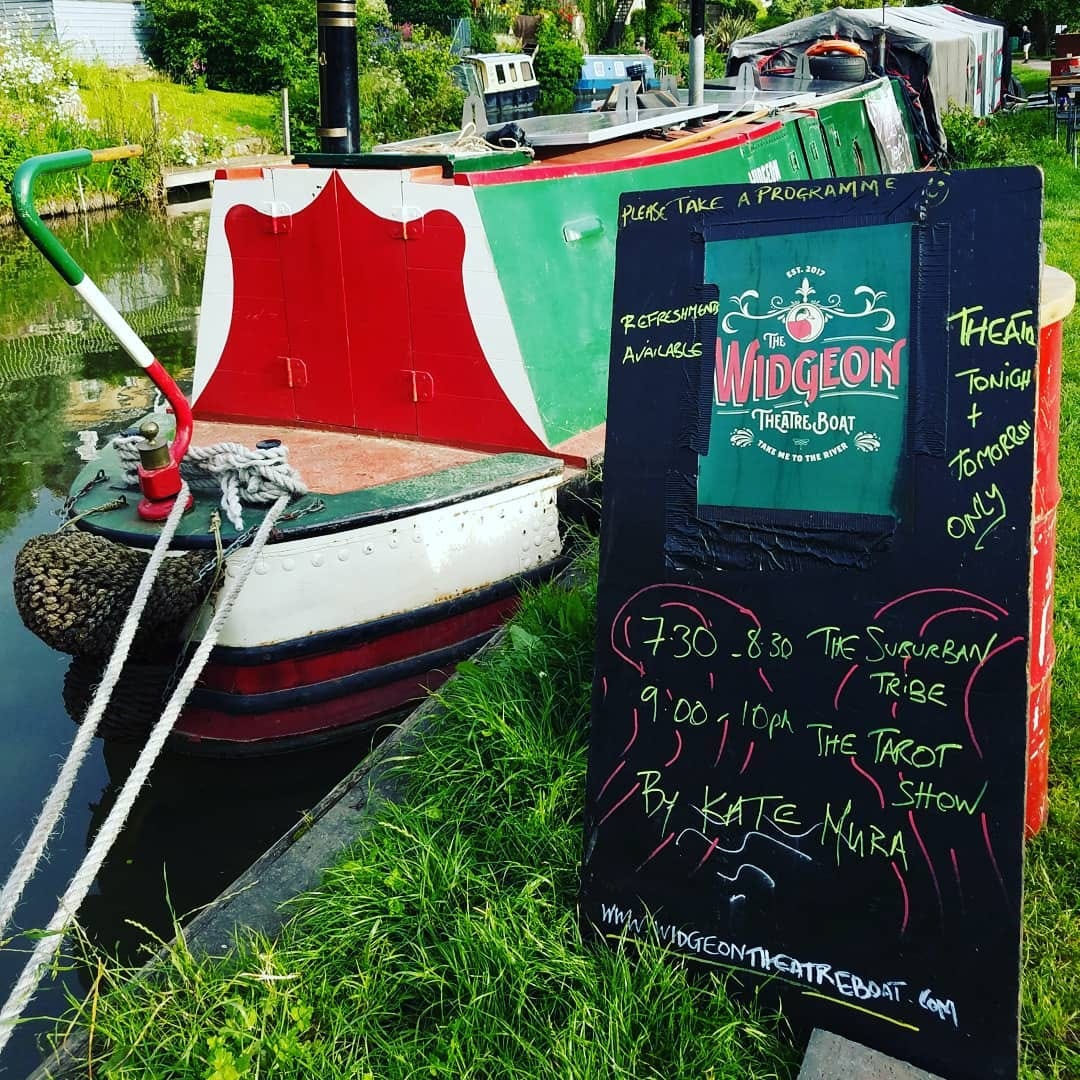 PLEASE TAKE A PROGRAMME
REFRESHMENTS
AVAILABLE
EST. 2017
THE
WIDGEON
THEATRE BOAT
TAKE ME TO THE RIVER
TONIGH
+
TOMORROW
ONLY
7:30 - 8:30 THE SUBURBAN
TRIBE
9:00 - 10PM THE TAROT
SHOW
BY KATE MURA
WWW.WIDGEONTHEATREBOAT.COM